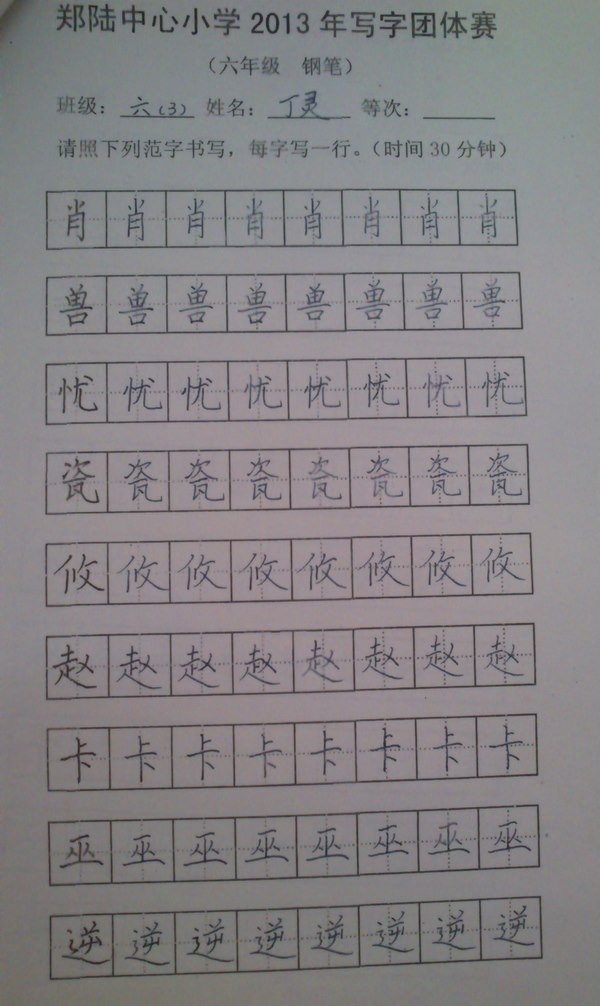 郑陆中心小学 2013 年写字团体赛
（六年级 钢笔）
班级：六(3) 姓名：丁灵 等次：
请照下列范字书写，每字写一行。（时间 30 分钟）
肖肖肖肖肖肖肖肖
兽兽兽兽兽兽兽兽
忧忧忧忧忧忧忧忧
瓷瓷瓷瓷瓷瓷瓷瓷
攸攸攸攸攸攸攸攸
赵赵赵赵赵赵赵赵
卡卡卡卡卡卡卡卡
巫巫巫巫巫巫巫巫
逆逆逆逆逆逆逆逆